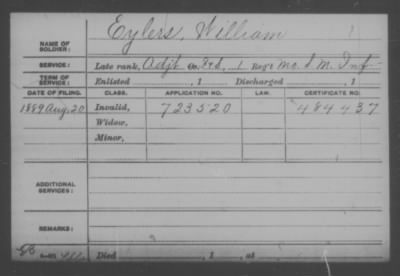 Eylers, William
NAME OF SOLDIER:
SERVICE: Late rank, Adjt Co. F&S, 1 Reg't Mo. S. M. Inf
TERM OF SERVICE: Enlisted , 1 Discharged , 1
DATE OF FILING. CLASS. APPLICATION NO. LAW. CERTIFICATE NO.
1889 Aug. 20 Invalid, 723520 484437
Widow,
Minor,
ADDITIONAL SERVICES:
REMARKS:
Died , 1 , at